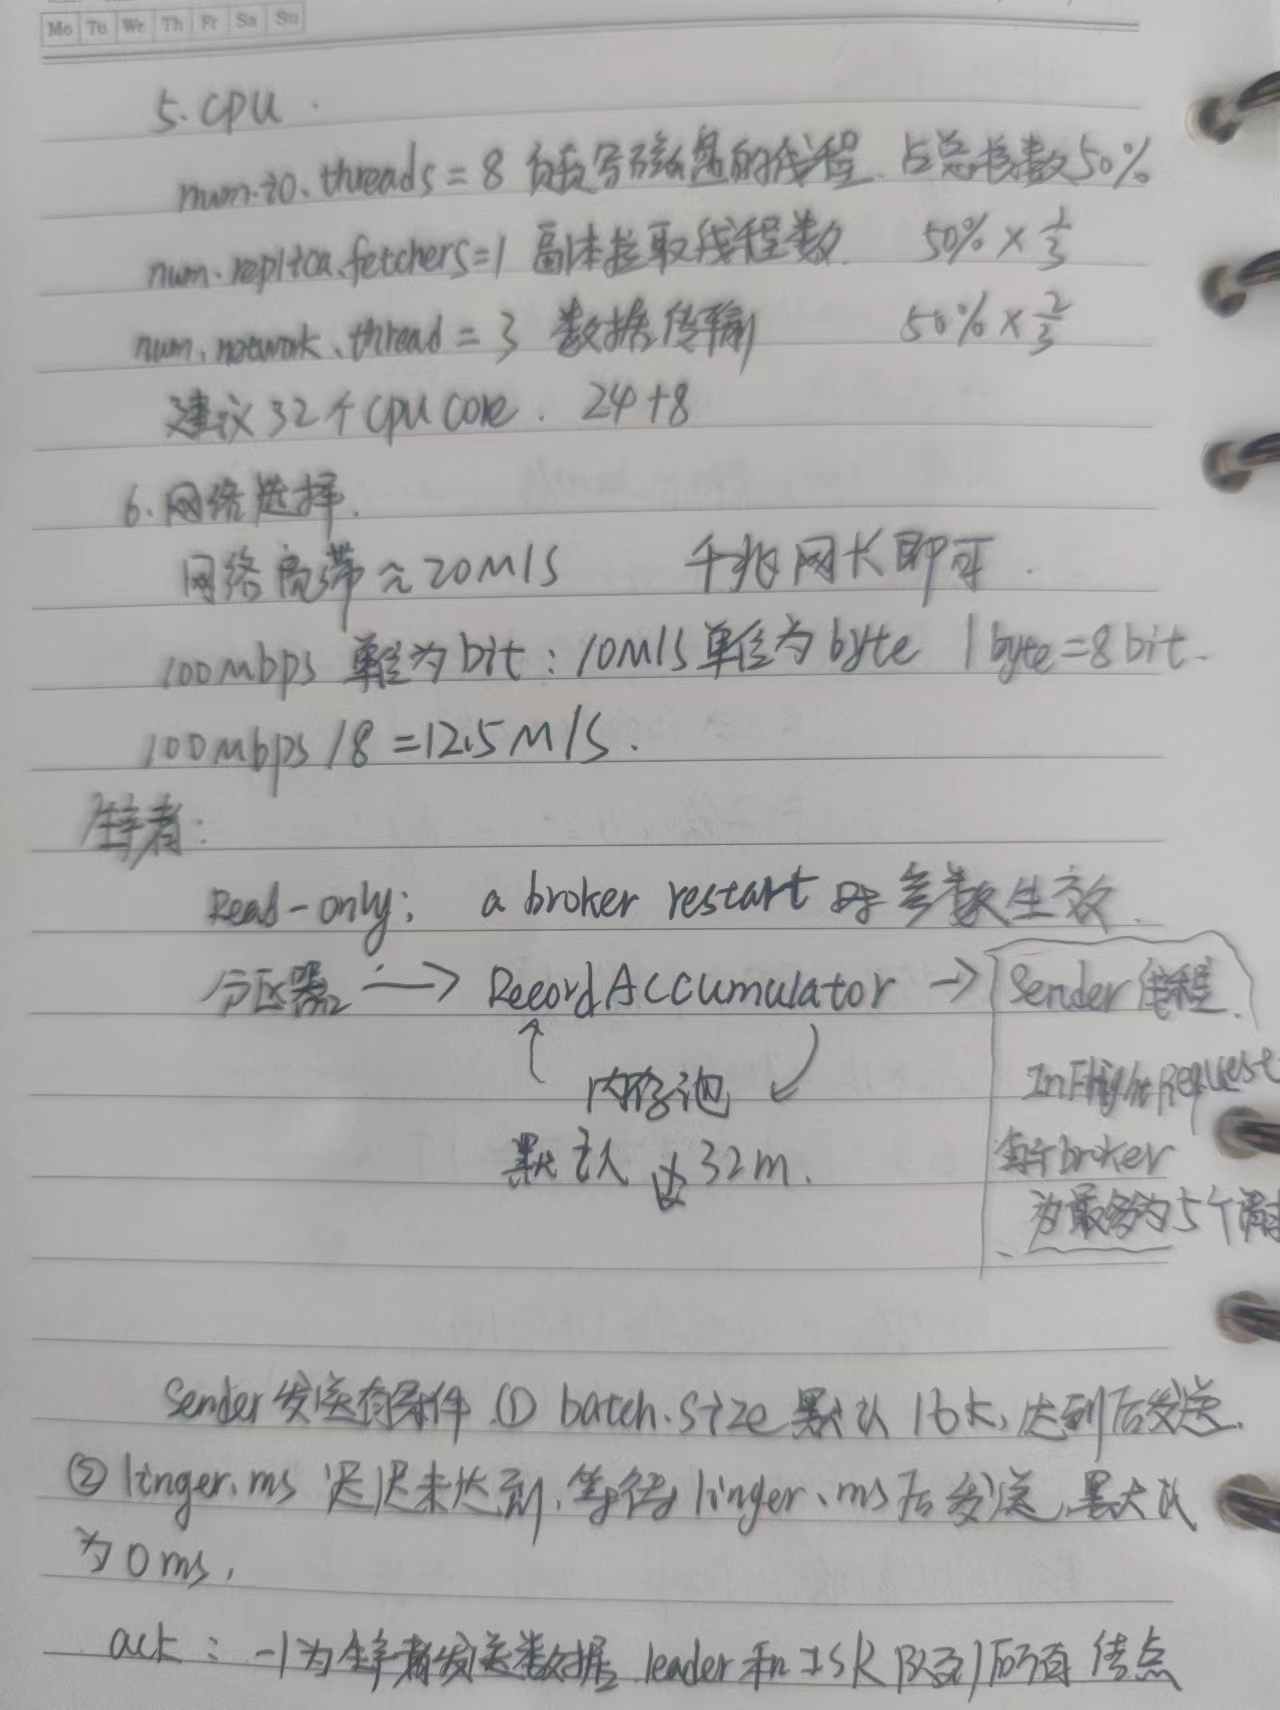 Mo Tu We Th Fr Sa Su
5. CPU
num.io.threads = 8 负责写磁盘的线程. 占总核数50%
num.replica.fetchers=1 副本拉取线程数. 50% × 1/3
num.network.thread = 3 数据传输 50% × 2/3
建议32个cpu core. 24+8
6. 网络选择.
网络宽带≈20M/S 千兆网卡即可.
100mbps 单位为bit; 10M/S单位为byte 1byte=8bit.
100mbps /8 =12.5M/S.
生产者:
Read-only: a broker restart 时参数生效.
分区器 → RecordAccumulator → Sender线程.
内存池
InFlightRequest
默认 32m.
每个broker
为最多为5个请求
Sender发送有条件 ① batch.size 默认16k, 达到后发送.
② linger.ms 迟迟未达到, 等待linger.ms后发送, 默认
为0ms,
ack: -1为生产者发送数据 leader和ISR队列所有结点